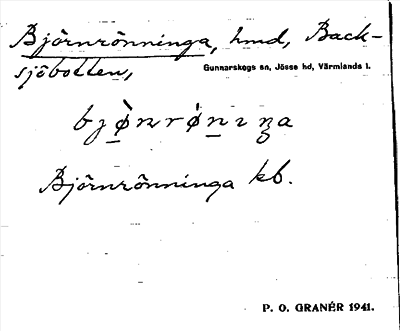 Björnrönninga, hmd, Back-
sjöbotten,
Gunnarskogs sn, Jösse hd, Värmlands l.
bjø̀n̲rǿn̲ıŋa
Björnrönninga kb.
P. O. GRANÉR 1941.